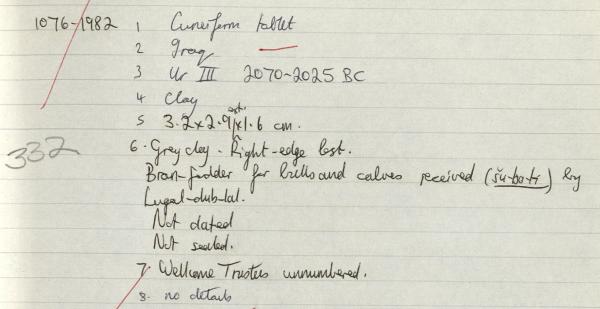 1076-1982 1 Cuneiform tablet
2 Iraq
3 Ur III 2070-2025 BC
4 Clay
5 3.2x2.9x1.6 cm.
332
6. Grey clay. Right-edge lost.
Bran-fodder for bulls and calves received (šu-ba-ti) by
Lugal-dub-lal.
Not dated
Not sealed.
7. Wellcome Trustees unnumbered.
8. no details